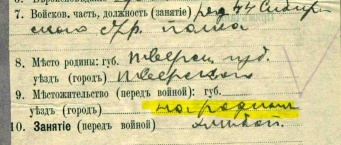 7. Войсков. часть, должность (занятіе) ряд 44 Сибир-
скаго стр. полка
8. Мѣсто родины: губ. Тверск. губ.
уѣздъ (городъ) Тверского
9. Мѣстожительство (передъ войной): губ.
уѣздъ (городъ) на родинѣ
10. Занятіе (передъ войной)